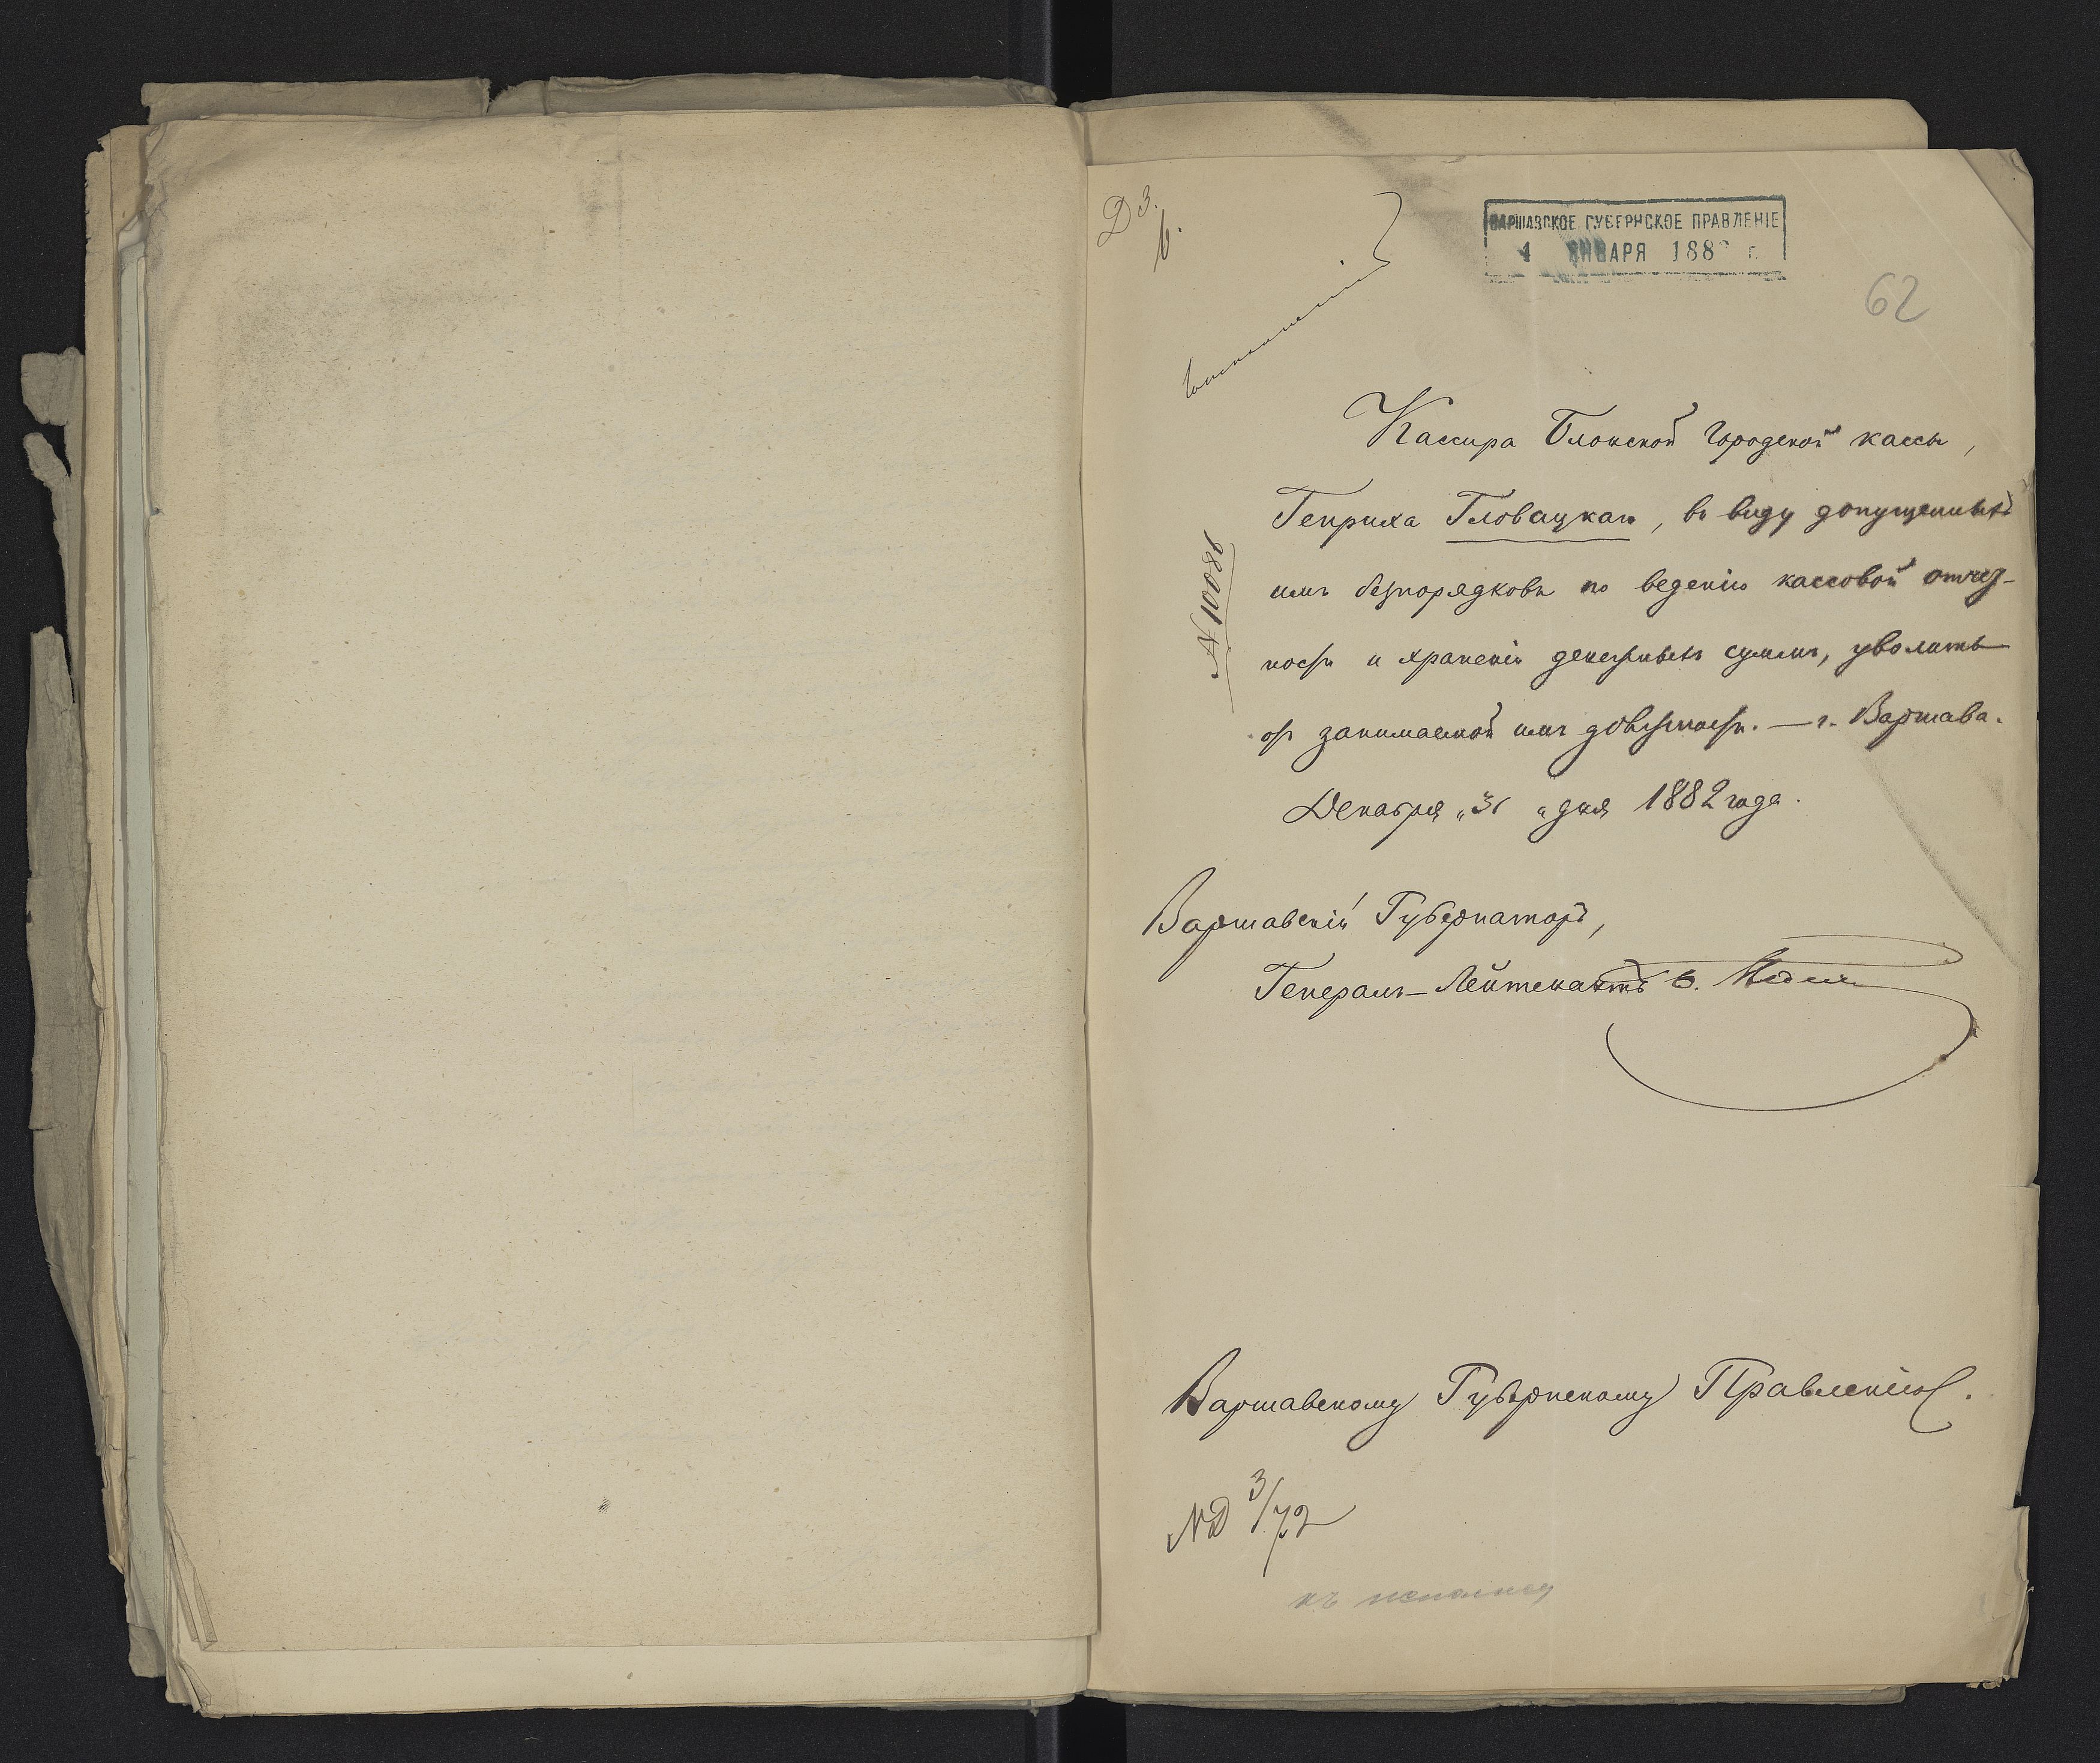 Д 3.
ВАРШАВСКОЕ ГУБЕРНСКОЕ ПРАВЛЕНІЕ
4 ЯНВАРЯ 188 г.
62
Кассира Блонской Городской кассы,
Генриха Гловацкаго, въ виду допущенныхъ
имъ безпорядковъ по веденію кассовой отчет-
ности и храненія денежныхъ суммъ, уволить
отъ занимаемой имъ должности. — г. Варшава.
Декабря „31 „ дня 1882 года.
№ 10086
Варшавскій Губернаторъ,
Генералъ-Лейтенантъ б. Медемъ
Варшавскому Губернскому Правленію.
№ Д 3/72
къ